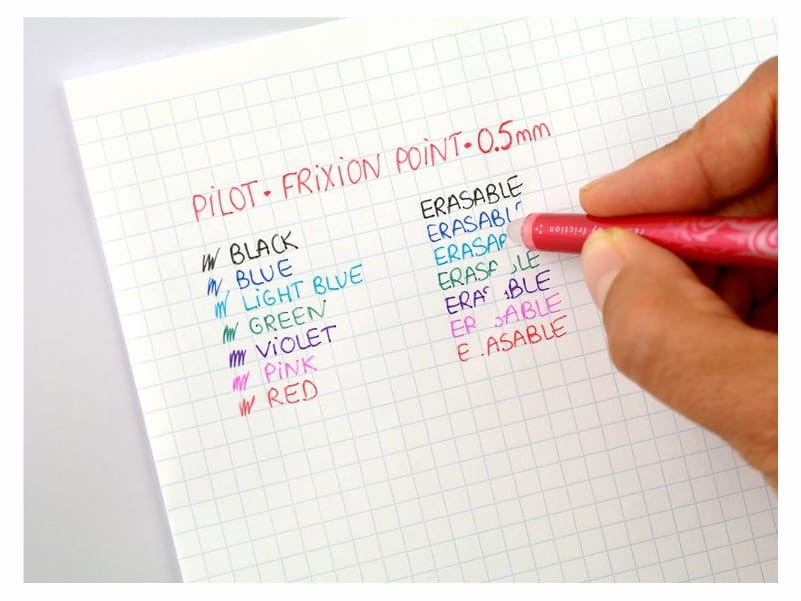 PILOT • FRIXION POINT • 0.5mm
BLACK
BLUE
LIGHT BLUE
GREEN
VIOLET
PINK
RED
ERASABLE
ERASABL
ERASA
ERASA LE
ERA ABLE
ER ABLE
E ASABLE
by friction